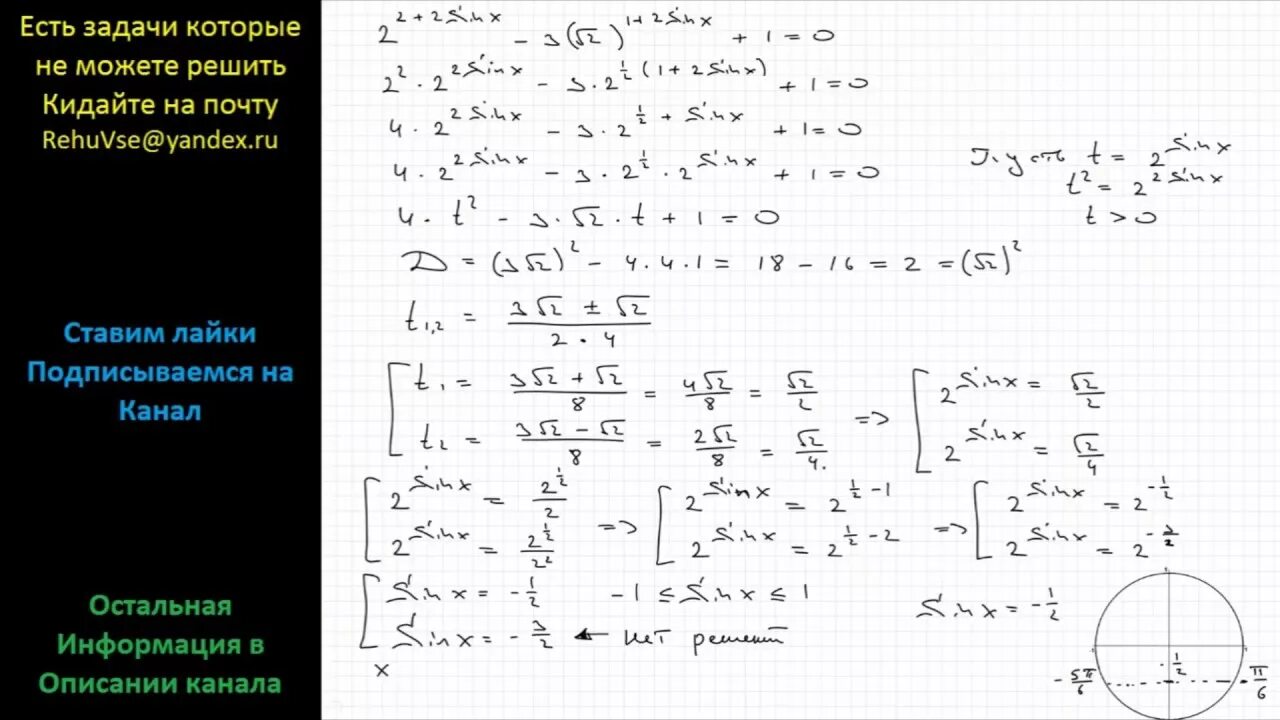 Есть задачи которые
не можете решить
Кидайте на почту
RehuVse@yandex.ru
Ставим лайки
Подписываемся на
Канал
Остальная
Информация в
Описании канала
2^(2+2Sinx) - 3(√2)^(1+2Sinx) + 1 = 0
2² · 2^(2Sinx) - 3·2^(½(1+2Sinx)) + 1 = 0
4 · 2^(2Sinx) - 3 · 2^(½+Sinx) + 1 = 0
4 · 2^(2Sinx) - 3 · 2^(½) · 2^(Sinx) + 1 = 0
Пусть t = 2^(Sinx)
t² = 2^(2Sinx)
t > 0
4 · t² - 3 · √2 · t + 1 = 0
D = (3√2)² - 4·4·1 = 18 - 16 = 2 = (√2)²
t₁,₂ = (3√2 ± √2)/(2 · 4)
[ t₁ = (3√2 + √2)/8 = 4√2/8 = √2/2
t₂ = (3√2 - √2)/8 = 2√2/8 = √2/4.
=> [ 2^(Sinx) = √2/2
2^(Sinx) = √2/4
[ 2^(Sinx) = 2^(½)/2
2^(Sinx) = 2^(½)/2²
=> [ 2^(Sinx) = 2^(½-1)
2^(Sinx) = 2^(½-2)
=> [ 2^(Sinx) = 2^(-½)
2^(Sinx) = 2^(-3/2)
[ Sinx = -½
Sinx = -3/2 ← нет решений
-1 ≤ Sinx ≤ 1
x
Sinx = -½
-½
-5π/6
-π/6